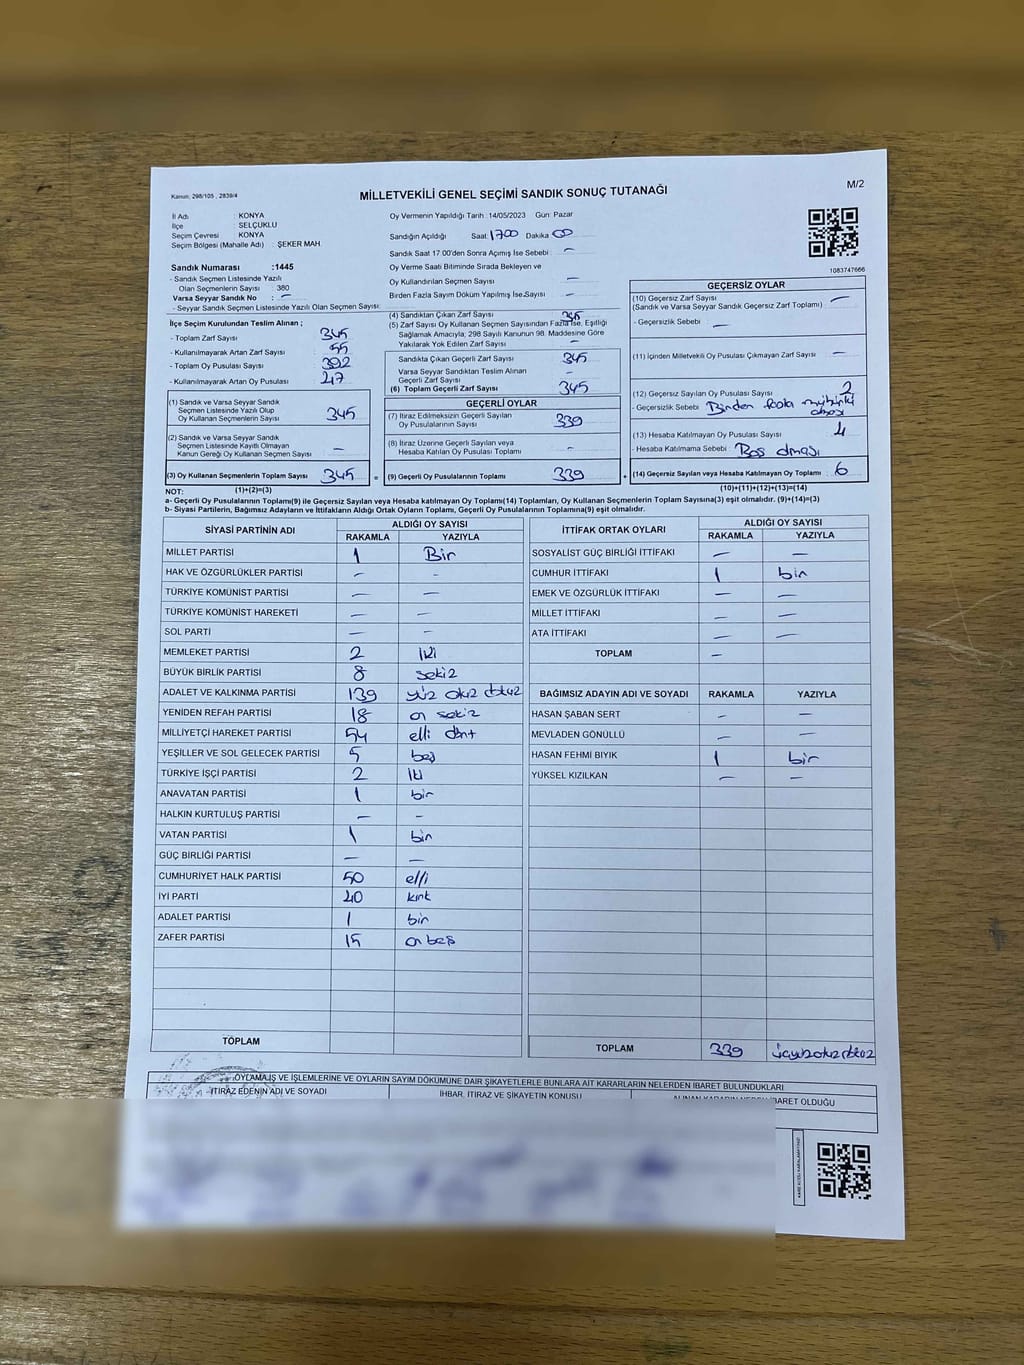 Kanun: 298/105 , 2839/4
MİLLETVEKİLİ GENEL SEÇİMİ SANDIK SONUÇ TUTANAĞI
M/2
İl Adı : KONYA
İlçe : SELÇUKLU
Seçim Çevresi : KONYA
Seçim Bölgesi (Mahalle Adı) : ŞEKER MAH
Sandık Numarası :1445
- Sandık Seçmen Listesinde Yazılı
Olan Seçmenlerin Sayısı : 380
Varsa Seyyar Sandık No : —
- Seyyar Sandık Seçmen Listesinde Yazılı Olan Seçmen Sayısı:
Oy Vermenin Yapıldığı Tarih :14/05/2023 Gün: Pazar
Sandığın Açıldığı Saat: 1700 Dakika 00
Sandık Saat 17.00'den Sonra Açımış İse Sebebi : —
Oy Verme Saati Bitiminde Sırada Bekleyen ve
Oy Kullandırılan Seçmen Sayısı —
Birden Fazla Sayım Döküm Yapılmış İse,Sayısı —
1083747666
İlçe Seçim Kurulundan Teslim Alınan ;
- Toplam Zarf Sayısı 345
- Kullanılmayarak Artan Zarf Sayısı 55
- Toplam Oy Pusulası Sayısı 392
- Kullanılmayarak Artan Oy Pusulası 47
(1) Sandık ve Varsa Seyyar Sandık
Seçmen Listesinde Yazılı Olup
Oy Kullanan Seçmenlerin Sayısı 345
(2) Sandık ve Varsa Seyyar Sandık
Seçmen Listesinde Kayıtlı Olmayan
Kanun Gereği Oy Kullanan Seçmen Sayısı —
(3) Oy Kullanan Seçmenlerin Toplam Sayısı 345 =
(1)+(2)=(3)
(4) Sandıktan Çıkan Zarf Sayısı 345
(5) Zarf Sayısı Oy Kullanan Seçmen Sayısından Fazla İse, Eşitliği
Sağlamak Amacıyla; 298 Sayılı Kanunun 98. Maddesine Göre
Yakılarak Yok Edilen Zarf Sayısı —
Sandıkta Çıkan Geçerli Zarf Sayısı 345
Varsa Seyyar Sandıktan Teslim Alınan
Geçerli Zarf Sayısı —
(6) Toplam Geçerli Zarf Sayısı 345
GEÇERLİ OYLAR
(7) İtiraz Edilmeksizin Geçerli Sayılan
Oy Pusulasının Sayısı 339
(8) İtiraz Üzerine Geçerli Sayılan veya
Hesaba Katılan Oy Pusulası Toplamı —
(9) Geçerli Oy Pusulalarının Toplamı 339 +
GEÇERSİZ OYLAR
(10) Geçersiz Zarf Sayısı —
(Sandık ve Varsa Seyyar Sandık Geçersiz Zarf Toplamı)
- Geçersizlik Sebebi —
(11) İçinden Milletvekili Oy Pusulası Çıkmayan Zarf Sayısı —
(12) Geçersiz Sayılan Oy Pusulası Sayısı 2
- Geçersizlik Sebebi Birden fazla mühürlü
(13) Hesaba Katılmayan Oy Pusulası Sayısı 4
- Hesaba Katılmama Sebebi Boş olması
(14) Geçersiz Sayılan veya Hesaba Katılmayan Oy Toplamı : 6
(10)+(11)+(12)+(13)=(14)
NOT:
a- Geçerli Oy Pusulalarının Toplamı(9) ile Geçersiz Sayılan veya Hesaba katılmayan Oy Toplamı(14) Toplamları, Oy Kullanan Seçmenlerin Toplam Sayısına(3) eşit olmalıdır. (9)+(14)=(3)
b- Siyasi Partilerin, Bağımsız Adayların ve İttifakların Aldığı Ortak Oyların Toplamı, Geçerli Oy Pusulalarının Toplamına(9) eşit olmalıdır.
SİYASİ PARTİNİN ADI ALDIĞI OY SAYISI
RAKAMLA YAZIYLA
MİLLET PARTİSİ 1 Bir
HAK VE ÖZGÜRLÜKLER PARTİSİ — —
TÜRKİYE KOMÜNİST PARTİSİ — —
TÜRKİYE KOMÜNİST HAREKETİ — —
SOL PARTİ — —
MEMLEKET PARTİSİ 2 İki
BÜYÜK BİRLİK PARTİSİ 8 sekiz
ADALET VE KALKINMA PARTİSİ 139 yüz otuz dokuz
YENİDEN REFAH PARTİSİ 18 on sekiz
MİLLİYETÇİ HAREKET PARTİSİ 54 elli dört
YEŞİLLER VE SOL GELECEK PARTİSİ 5 beş
TÜRKİYE İŞÇİ PARTİSİ 2 İki
ANAVATAN PARTİSİ 1 bir
HALKIN KURTULUŞ PARTİSİ — —
VATAN PARTİSİ 1 bir
GÜÇ BİRLİĞİ PARTİSİ — —
CUMHURİYET HALK PARTİSİ 50 elli
İYİ PARTİ 40 kırk
ADALET PARTİSİ 1 bir
ZAFER PARTİSİ 15 on beş
TOPLAM
İTTİFAK ORTAK OYLARI ALDIĞI OY SAYISI
RAKAMLA YAZIYLA
SOSYALİST GÜÇ BİRLİĞİ İTTİFAKI — —
CUMHUR İTTİFAKI 1 bin
EMEK VE ÖZGÜRLÜK İTTİFAKI — —
MİLLET İTTİFAKI — —
ATA İTTİFAKI — —
TOPLAM —
BAĞIMSIZ ADAYIN ADI VE SOYADI RAKAMLA YAZIYLA
HASAN ŞABAN SERT — —
MEVLADEN GÖNÜLLÜ — —
HASAN FEHMİ BIYIK 1 bir
YÜKSEL KIZILKAN — —
TOPLAM 339 üçyüzotuzdokuz
OYLAMA,İŞ VE İŞLEMLERİNE VE OYLARIN SAYIM DÖKÜMÜNE DAİR ŞİKAYETLERLE BUNLARA AİT KARARLARIN NELERDEN İBARET BULUNDUKLARI
İTİRAZ EDENİN ADI VE SOYADI İHBAR, İTİRAZ VE ŞİKAYETİN KONUSU